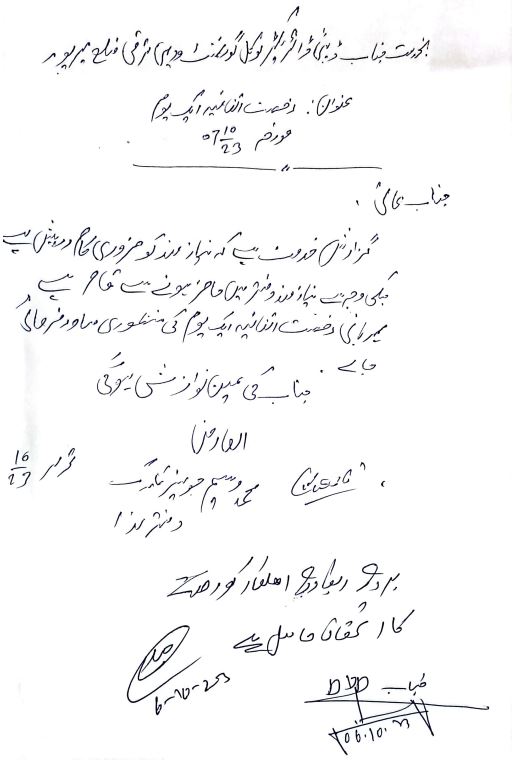 بخدمت جناب ڈپٹی ڈائریکٹر لوکل گورنمنٹ و دیہی ترقی ضلع میرپور
عنوان: رخصت اتفاقیہ ایک یوم
مورخہ 07 10/23
جناب عالی
گزارش خدمت ہے کہ نیازمند کو ضروری کام درپیش ہے
جسکی وجہ سے نیازمند دفتر میں حاضر ہونے سے قاصر ہے
مہربانی رخصت اتفاقیہ ایک یوم کی منظوری صادر فرمائی
جائے .
جناب کی عین نوازش ہوگی
العارض
محمد وسیم جونیئر کلرک
دفتر ہذا
10/23
بروئے ریکارڈ اہلکار کو رخصت
کا استحقاق حاصل ہے
6-10-23
جناب DDD
06.10.23